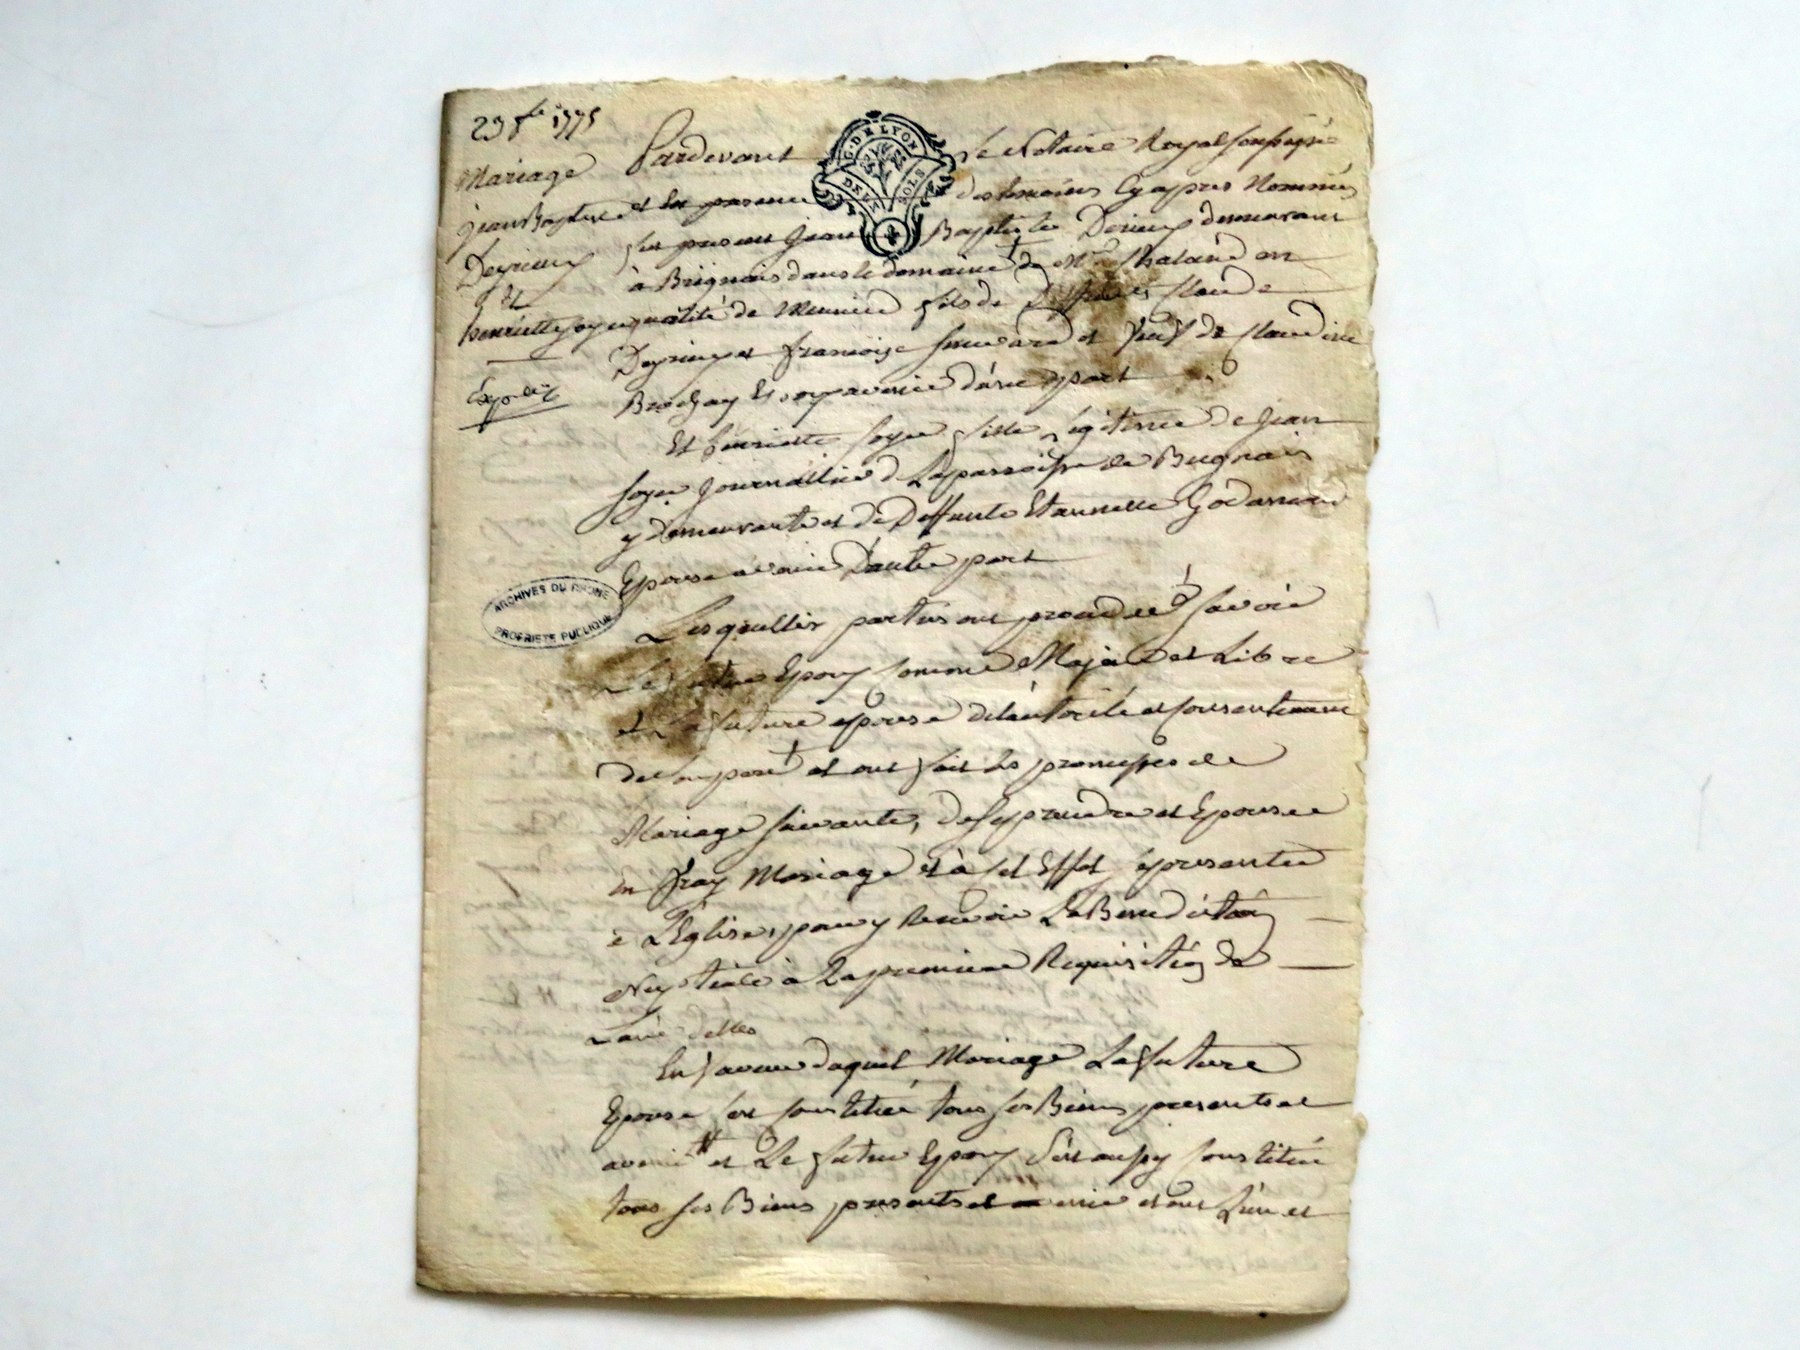 23 8bre 1775
Mariage
Jean Baptiste
Deyrieux
et
henriette soyer
Exp.dié
G. DE LYON
DEUX SOLS
Pardevant le Notaire Royal soussigné
et en presence des temoins Cy apres Nommés
fut present Jean Baptiste Derieux demeurant
à Brignais dans le domaine de Mr en
qualité de Meunier fils de Deffunts Claude
Deyrieux et francoise et Veuf de Claudine
Brochay Epoux avenir d'une part
Et henriette soyer fille Legitime de Jean
soyer Journallier de La parroisse de Brignais
y demeurante et de Deffunte Etiennette
Epouse avenir D'autre part
Lesquelles parties ont procedé savoir
Le futur Epoux comme Majeur et Libre
et La future epouse de L'autorité et consentement
de son pere et ont fait les promesses de
Mariage suivante, de se prendre et Epouser
en Vray Mariage et à cet Effet se presenter
à L'Eglise pour y Recevoir La Benediction
Nuptiale à La premiere Requisition de
L'une d'elles
En faveur duquel Mariage La future
Epouse s'est constituée tous ses Biens presents et
avenir et Le futur Epoux s'est aussy constitué
tous ses Biens presents et avenir et ont
ARCHIVES DU RHONE
PROPRIETE PUBLIQUE